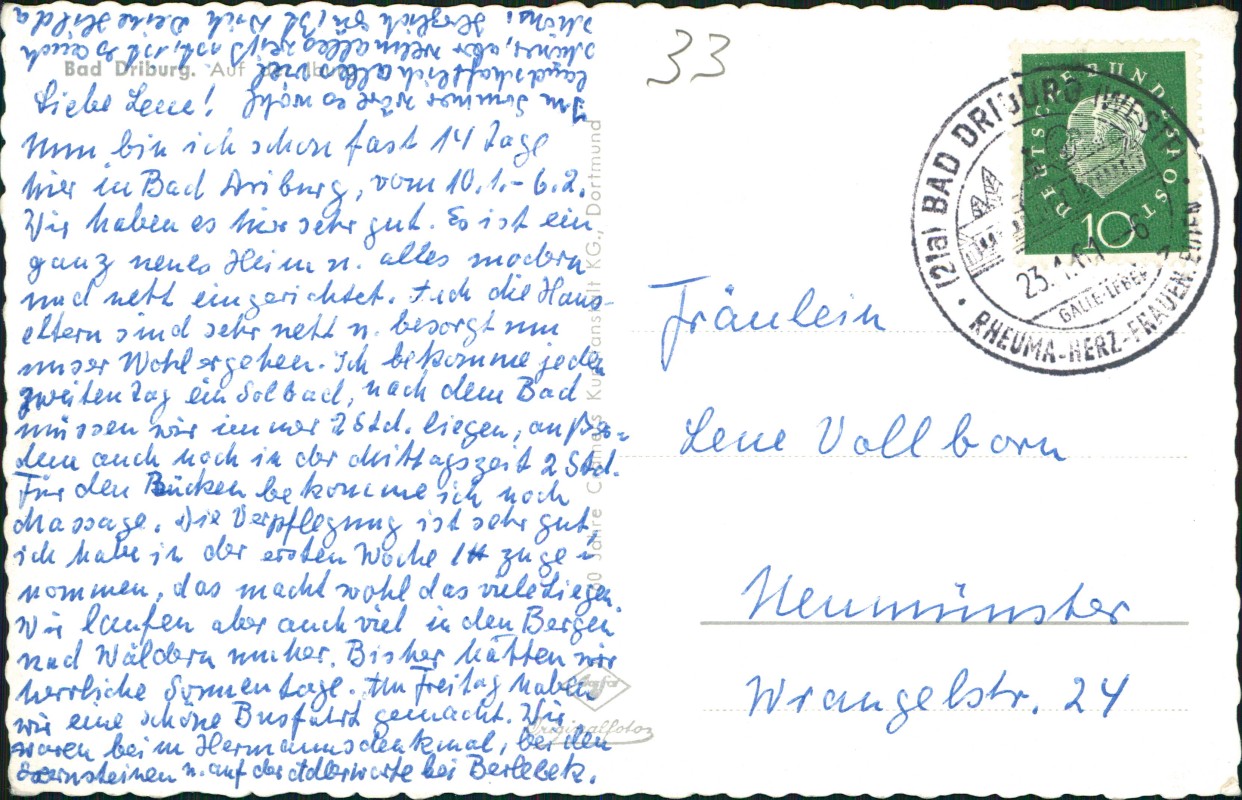 Bad Driburg. Auf
Liebe Lene!
Nun bin ich schon fast 14 Tage
hier in Bad Driburg, vom 10.1.-6.2.
Wir haben es hier sehr gut. Es ist ein
ganz neues Heim u. alles modern
und nett eingerichtet. Auch die Haus-
eltern sind sehr nett u. besorgt um
unser Wohlergehen. Ich bekomme jeden
zweiten Tag ein Solbad, nach dem Bad
müssen wir immer 2 Std. liegen, außer-
dem auch noch in der Mittagszeit 2 Std.
Für den Rücken bekomme ich noch
Massage. Die Verpflegung ist sehr gut,
ich habe in der ersten Woche 1 ℔ zuge-
nommen, das macht wohl das viele Liegen.
Wir laufen aber auch viel in den Bergen
und Wäldern umher. Bisher hatten wir
herrliche Sonnentage. Am Freitag haben
wir eine schöne Busfahrt gemacht. Wir
waren beim Hermannsdenkmal, bei den
Externsteinen u. auf der Adlerwarte bei Berlebek.
Im Sommer wäre es wohl
landschaftlich alles viel
schöner, aber weim alles weiß ist, ist es auch
schön. Herzlich grüßt Dich Deine Hilda
Jahre Cramers Kunstanstalt KG., Dortmund
Agfa
Originalfoto
33
DEUTSCHE BUNDESPOST
10
(21a) BAD DRIBURG (WESTF)
23.1.61 -6
GALLE-LEBER
RHEUMA-HERZ-FRAUEN-LEIDEN
Fräulein
Lene Vollborn
Neumünster
Wrangelstr. 24